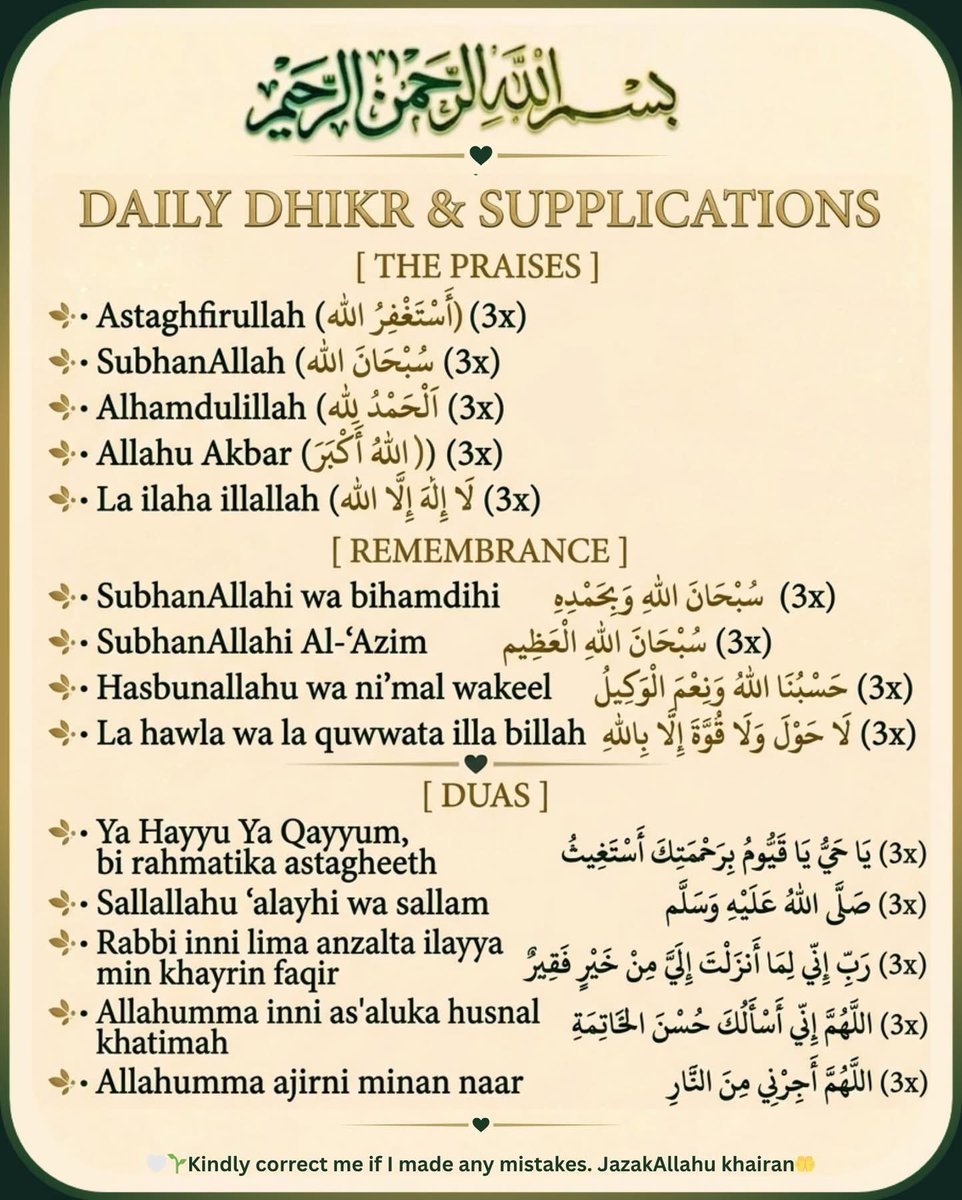 بسم الله الرحمن الرحيم
DAILY DHIKR & SUPPLICATIONS
[ THE PRAISES ]
• Astaghfirullah (أَسْتَغْفِرُ الله) (3x)
• SubhanAllah (سُبْحَانَ الله (3x)
• Alhamdulillah (اَلْحَمْدُ لِله (3x)
• Allahu Akbar (اللهُ أَكْبَرَ)) (3x)
• La ilaha illallah (لَا إِلٰهَ إِلَّا الله (3x)
[ REMEMBRANCE ]
• SubhanAllahi wa bihamdihi سُبْحَانَ اللهِ وَبِحَمْدِهِ (3x)
• SubhanAllahi Al-‘Azim سُبْحَانَ اللهِ الْعَظِيم (3x)
• Hasbunallahu wa ni’mal wakeel حَسْبُنَا اللهُ وَنِعْمَ الْوَكِيلُ (3x)
• La hawla wa la quwwata illa billah لَا حَوْلَ وَلَا قُوَّةَ إِلَّا بِاللهِ (3x)
[ DUAS ]
• Ya Hayyu Ya Qayyum,
bi rahmatika astagheeth يَا حَيُّ يَا قَيُّومُ بِرَحْمَتِكَ أَسْتَغِيثُ (3x)
• Sallallahu ‘alayhi wa sallam صَلَّى اللهُ عَلَيْهِ وَسَلَّم (3x)
• Rabbi inni lima anzalta ilayya
min khayrin faqir رَبِّ إِنِّي لِمَا أَنزَلْتَ إِلَيَّ مِنْ خَيْرٍ فَقِيرٌ (3x)
• Allahumma inni as'aluka husnal
khatimah اللَّهُمَّ إِنِّي أَسْأَلُكَ حُسْنَ الخَاتِمَةِ (3x)
• Allahumma ajirni minan naar اللَّهُمَّ أَجِرْنِي مِنَ النَّارِ (3x)
🤍🌱Kindly correct me if I made any mistakes. JazakAllahu khairan🤲